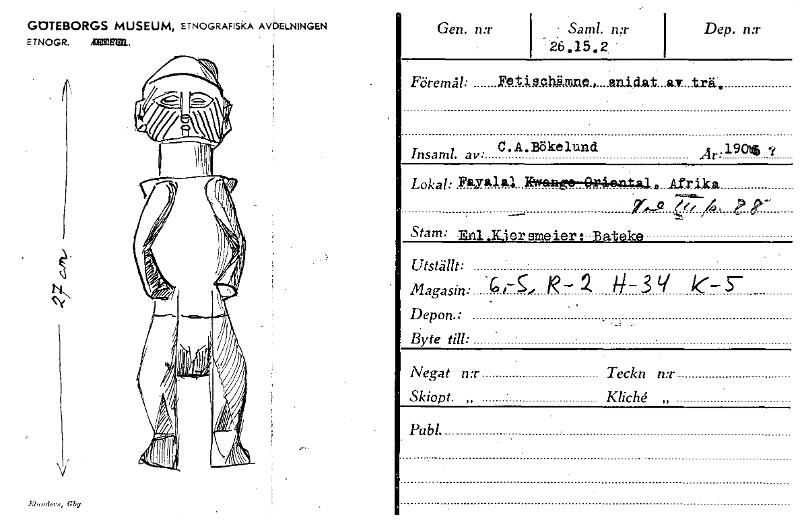 GÖTEBORGS MUSEUM, ETNOGRAFISKA AVDELNINGEN
ETNOGR.
27 cm
Elanders, Gbg
Gen. n:r
Saml. n:r
26.15.2
Dep. n:r
Föremål: Fetischämne, snidat av trä.
Insaml. av: C.A.Bökelund
År: 190 ?
Lokal: Fayala, Kwango Oriental, Afrika
III p. 28
Stam: Enl.Kjersmeier: Bateke
Utställt:
Magasin: 6,-5, R-2 H-34 K-5
Depon.:
Byte till:
Negat n:r
Teckn n:r
Skiopt. „
Kliché „
Publ.